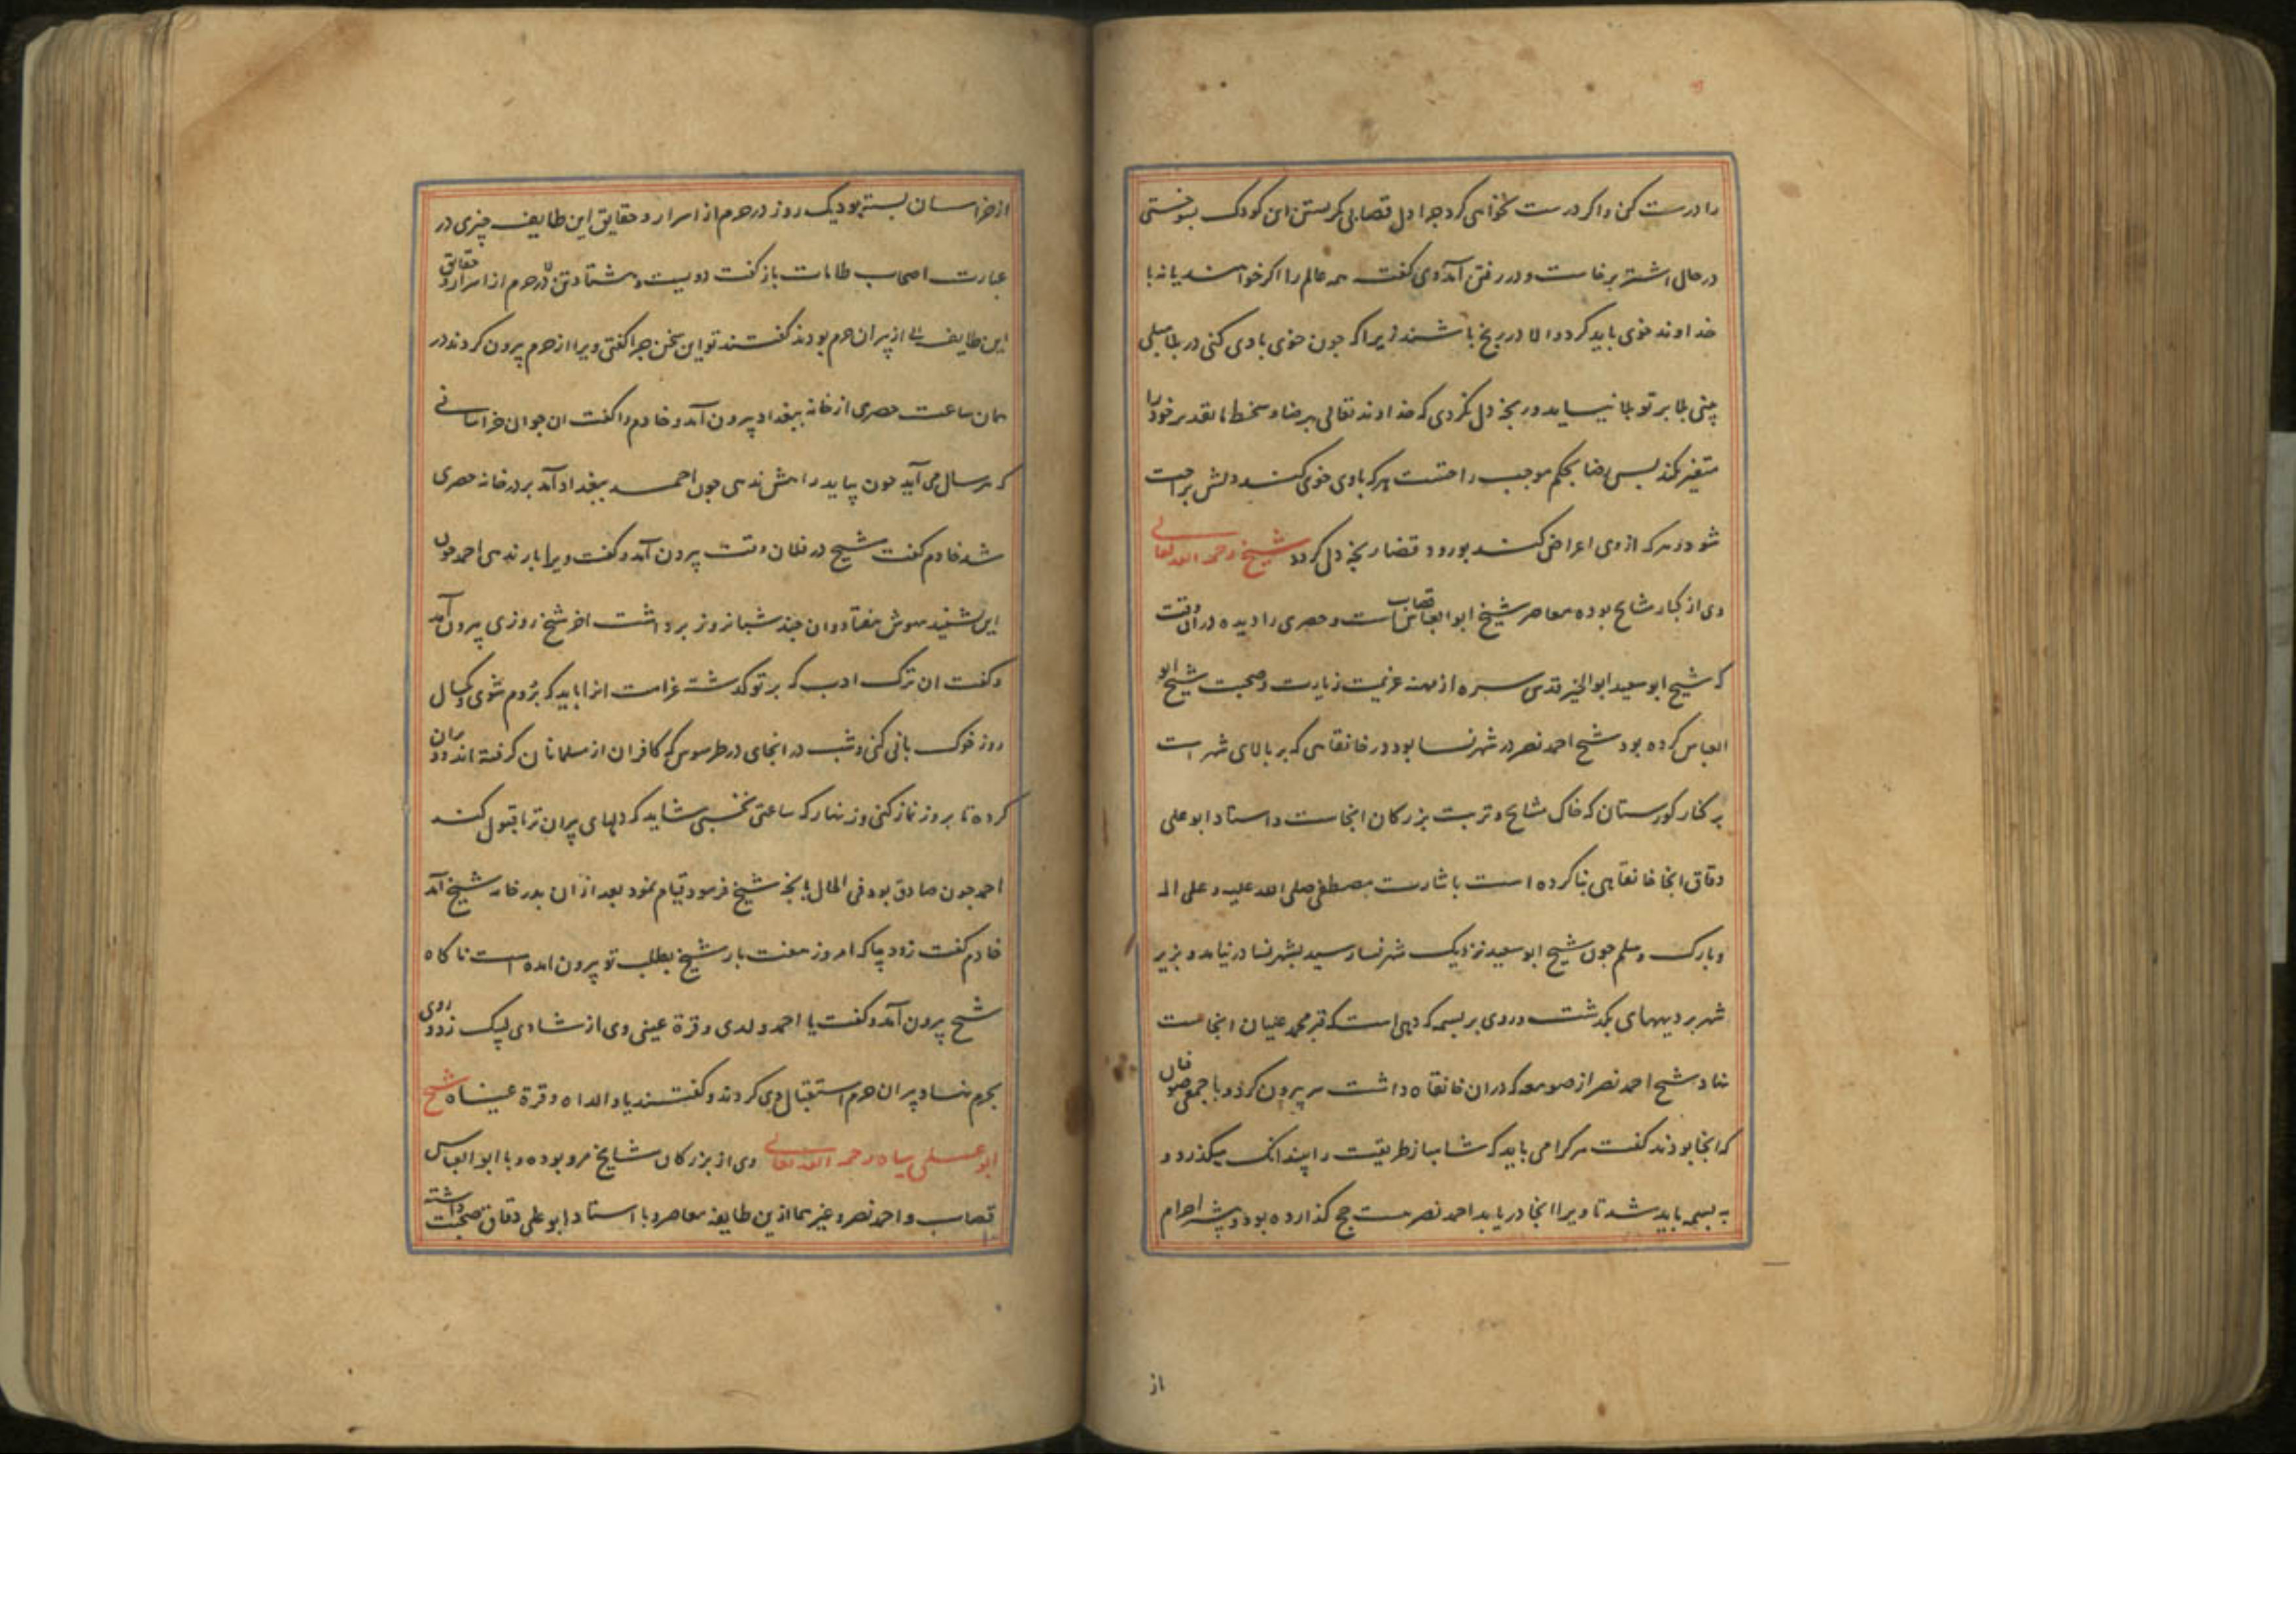 را درست کن و اکر درست نخواهی کرد چرا دل قصاب بکریستن این کودک بسوختی
در حال اشتر برخاست و در رفتن آمد و وی کفت همه عالم را اکر خواهند یا نه با
خداوند خوی باید کرد و الا در رنج باشند زیرا که چون خوی با وی کنی در بلا مبلی
بینی بلا بر تو بلا نیاید و رنجه دل نکردی که خداوند تعالی برضا و سخط ما تقدیر خود را
متغیر نکند پس رضا بحکم موجب راحتست هر که با وی خوی کند دلش براحت
شود و هر که از وی اعراض کند بورود قضا رنجه دل کردد شیخ رحمه الله تعالی
وی از کبار مشایخ بوده معاصر شیخ ابو العباس قصاب است و حصری را دیده در ان وقت
که شیخ ابو سعید ابو الخیر قدس سره از مهنه عزیمت زیارت و صحبت شیخ ابو
العباس کرده بود شیخ احمد نصر در شهر نسا بود در خانقاهی که بر بالای شهر است
بر کنار کورستان که خاک مشایخ و تربت بزرکان انجاست و استاد ابو علی
دقاق انجا خانقاهی بنا کرده است باشارت مصطفی صلی الله علیه و علی اله
و بارک وسلم چون شیخ ابو سعید نزدیک شهر نسا رسید بشهر نسا در نیامد و بزیر
شهر بر دیههای بکذشت و روی بر بسمه که دیهی است که قبر محمد علیان انجاست
نهاد شیخ احمد نصر از صومعه که دران خانقاه داشت سر بیرون کرد و با جمعی صوفیان
که انجا بودند کفت هر کرا می باید که شاهباز طریقت را بیند انک میکذرد و
به بسمه باید شد تا ویرا انجا دریابد احمد نصر بیست حج کذارده بود و بیشتر احرام
از
از خراسان بسته بود یک روز در حرم از اسرار و حقایق این طایفه چیزی در
عبارت اصحاب طامات باز کفت دویست و هشتاد تن در حرم از اسرار و حقایق
این طایفه از پیران حرم بودند کفتند تو این سخن چرا کفتی ویرا از حرم بیرون کردند در
همان ساعت حصری از خانه ببغداد بیرون آمد و خادم را کفت ان جوان خراسانی
که هر سال می آید چون بیاید راهش ندهی چون احمد ببغداد آمد بر در خانه حصری
شد خادم کفت شیخ در فلان وقت بیرون آمد و کفت ویرا بار ندهی احمد چون
این بشنید بیهوش بیفتاد و ان چند شبانروز برداشت اخر شیخ روزی بیرون آمد
و کفت ان ترک ادب که بر تو کذشت غرامت انرا باید که بروم شوی و یکسال
روز خوک بانی کنی و شب در انجای در طرسوس که کافران از مسلمانان کرفته اند و ویران
کرده تا بروز نماز کنی و زینهار که ساعتی نخسبی شاید که دلهای پیران ترا قبول کند
احمد چون صادق بود فی الحال بانچه شیخ فرمود قیام نمود بعد از ان بدر خانه شیخ آمد
خادم کفت زود بیا که امروز هفت بار شیخ بطلب تو بیرون امده است ناکاه
شیخ بیرون آمد و کفت یا احمد ولدی و قرة عینی وی از شادی لبیک زد و روی
بحرم نهاد پیران حرم استقبال وی کردند و کفتند یا ولداه و قرة عیناه شیخ
ابو علی سیاه رحمه الله تعالی وی از بزرکان مشایخ مرو بوده و با ابو العباس
قصاب و احمد نصر و غیر هما ازین طایفه معاصر و با استاد ابو علی دقاق صحبت داشته